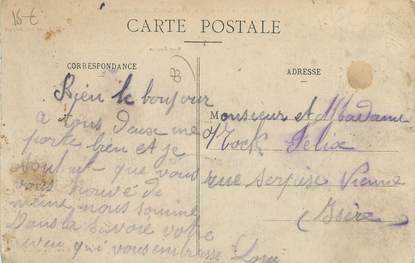 15 €
CARTE POSTALE
CORRESPONDANCE
ADRESSE
Bien le bonjour
à tous deux me
porte bien et je
souhait que vous
vous trouvé de
meme nous somme
Dans la Savoie votre
neveu qui vous embrasse
Monsieur et Madame
Félix
rue Vienne
(Isère)